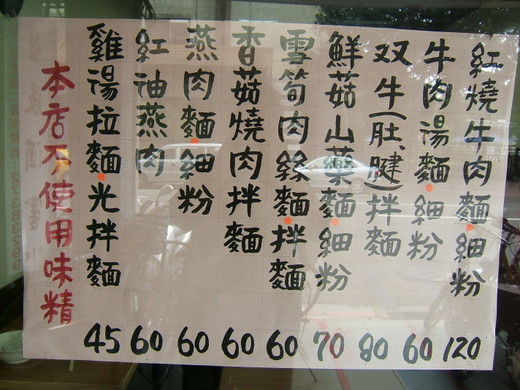 紅燒牛肉麵.細粉 120
牛肉湯麵.細粉 60
双牛(肚、腱)拌麵 80
鮮菇山藥麵.細粉 70
雪筍肉絲麵.拌麵 60
香菇燒肉拌麵 60
燕肉麵.細粉 60
紅油燕肉 60
雞湯拉麵.光拌麵 45
本店不使用味精